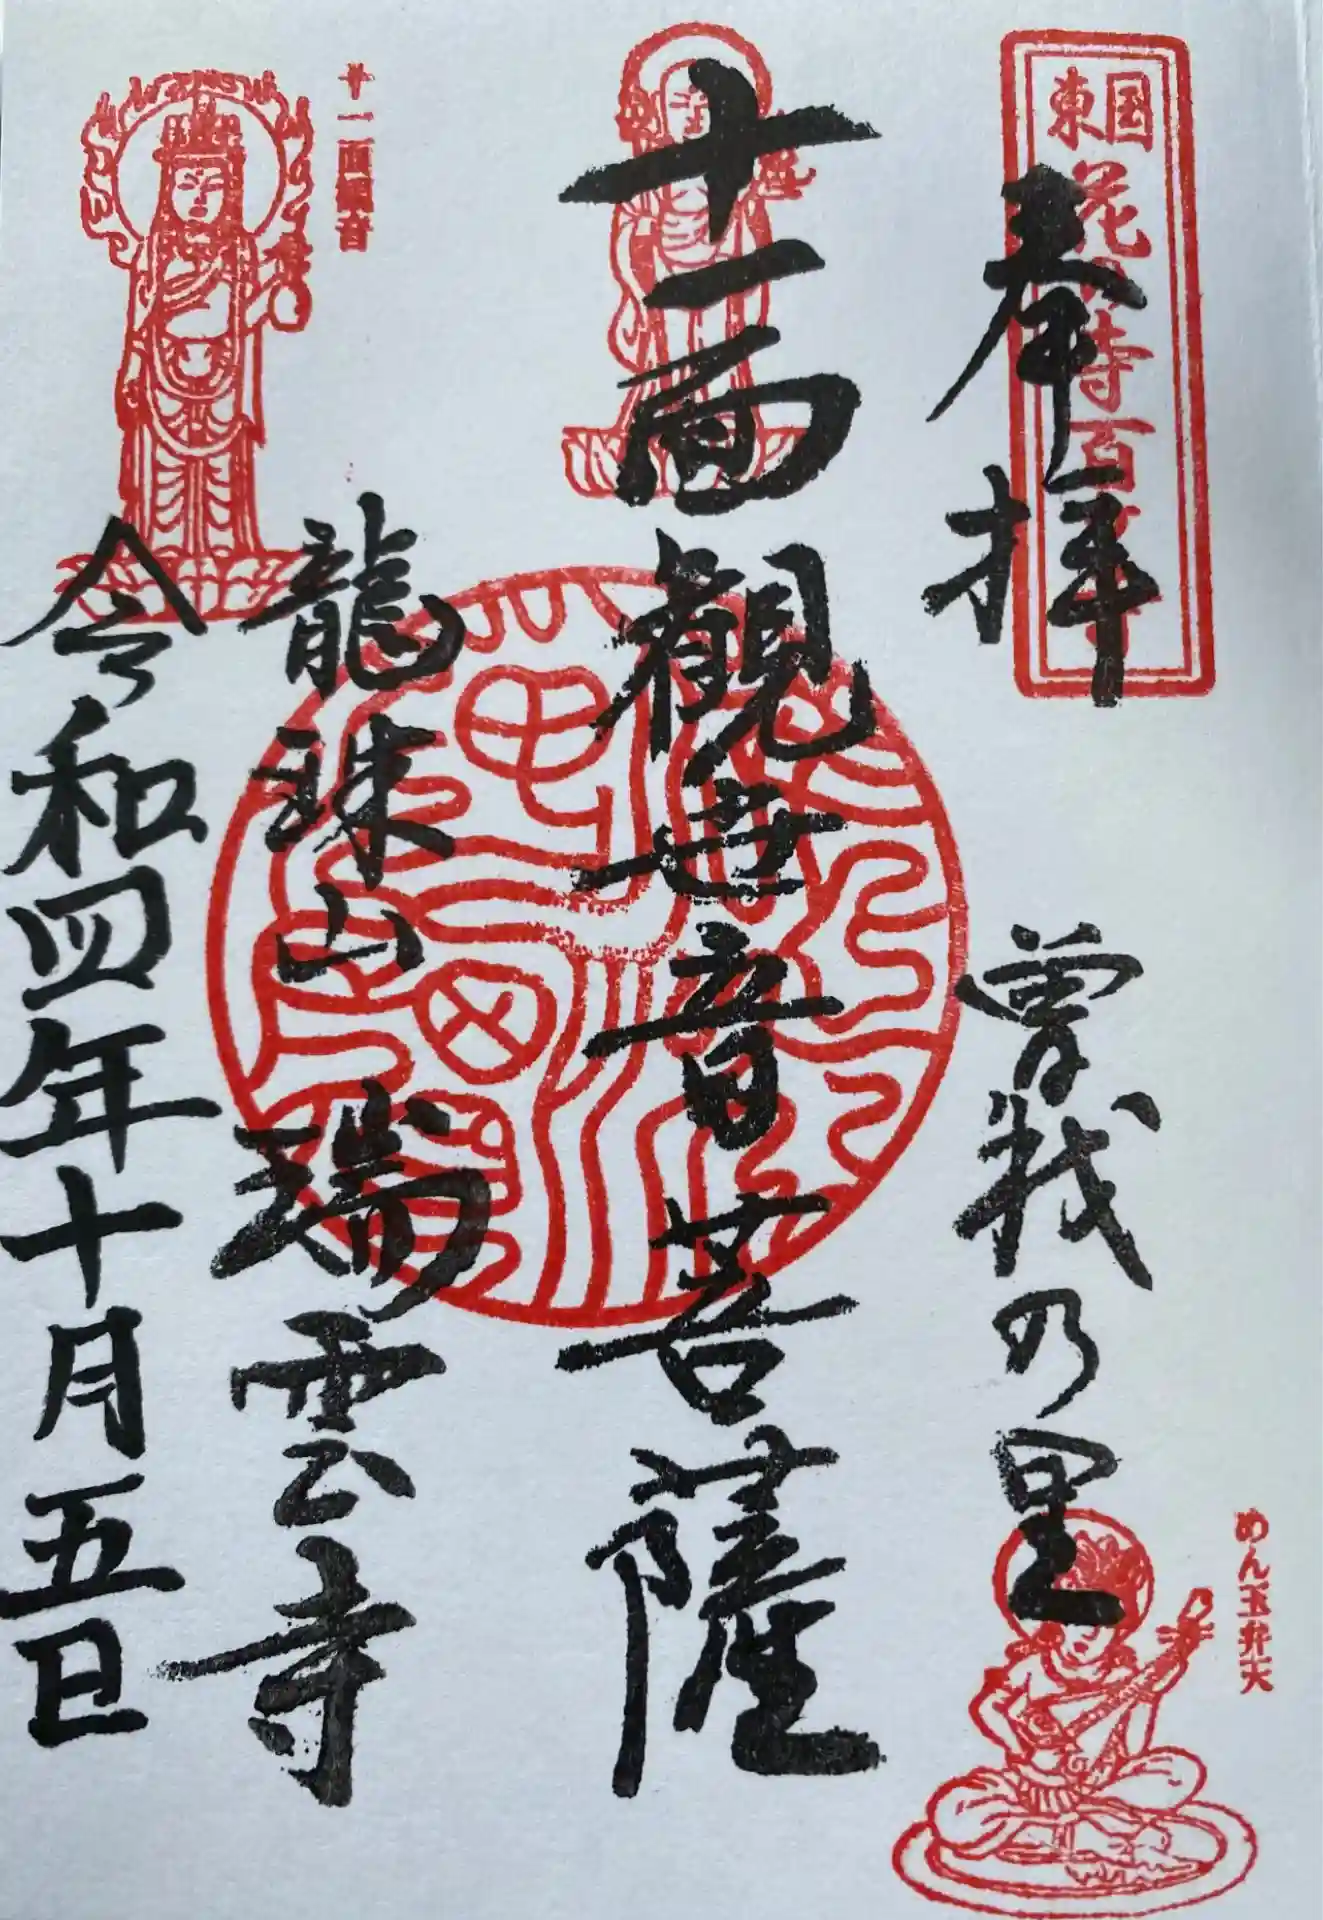 東国花の寺百ヶ寺
奉拝
曽我の里
めん玉弁天
十一面観世音菩薩
十一面観音
龍珠山 瑞雲寺
令和四年十月五日